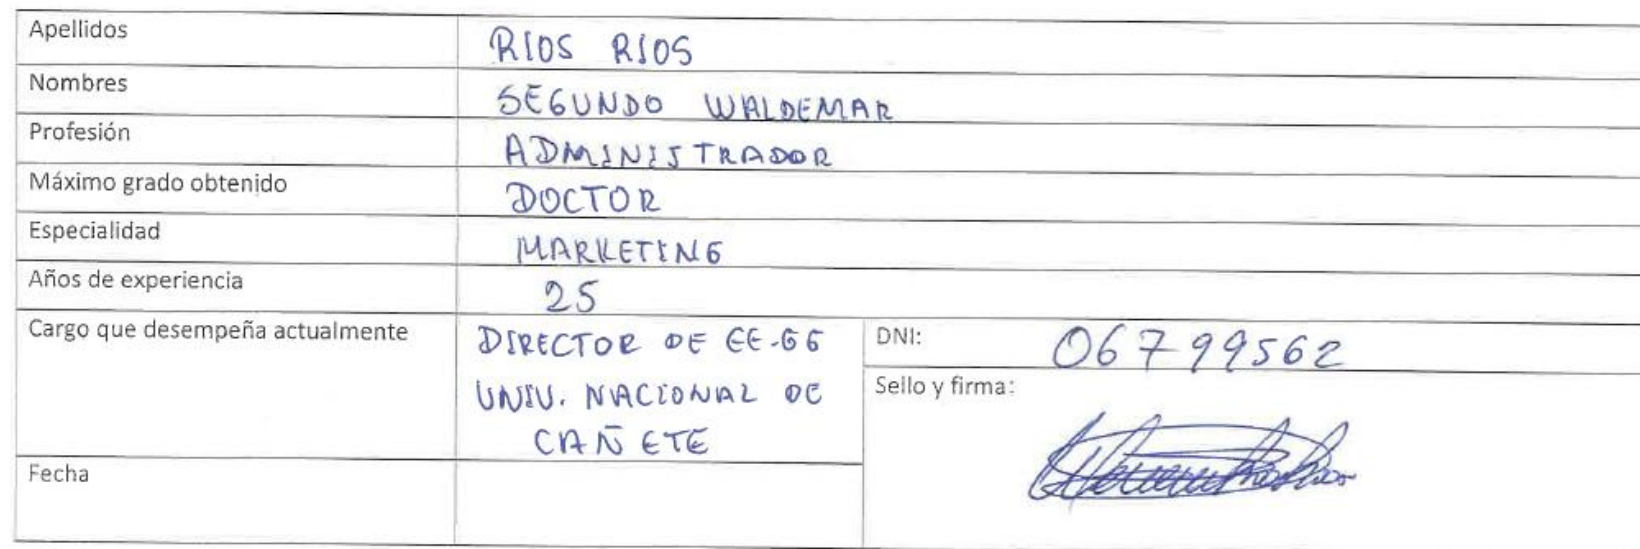 Apellidos RIOS RIOS
Nombres SEGUNDO WALDEMAR
Profesión ADMINISTRADOR
Máximo grado obtenido DOCTOR
Especialidad MARKETING
Años de experiencia 25
Cargo que desempeña actualmente DIRECTOR DE EE.GG DNI: 06799562
UNIV. NACIONAL DE Sello y firma:
CAÑETE
Fecha